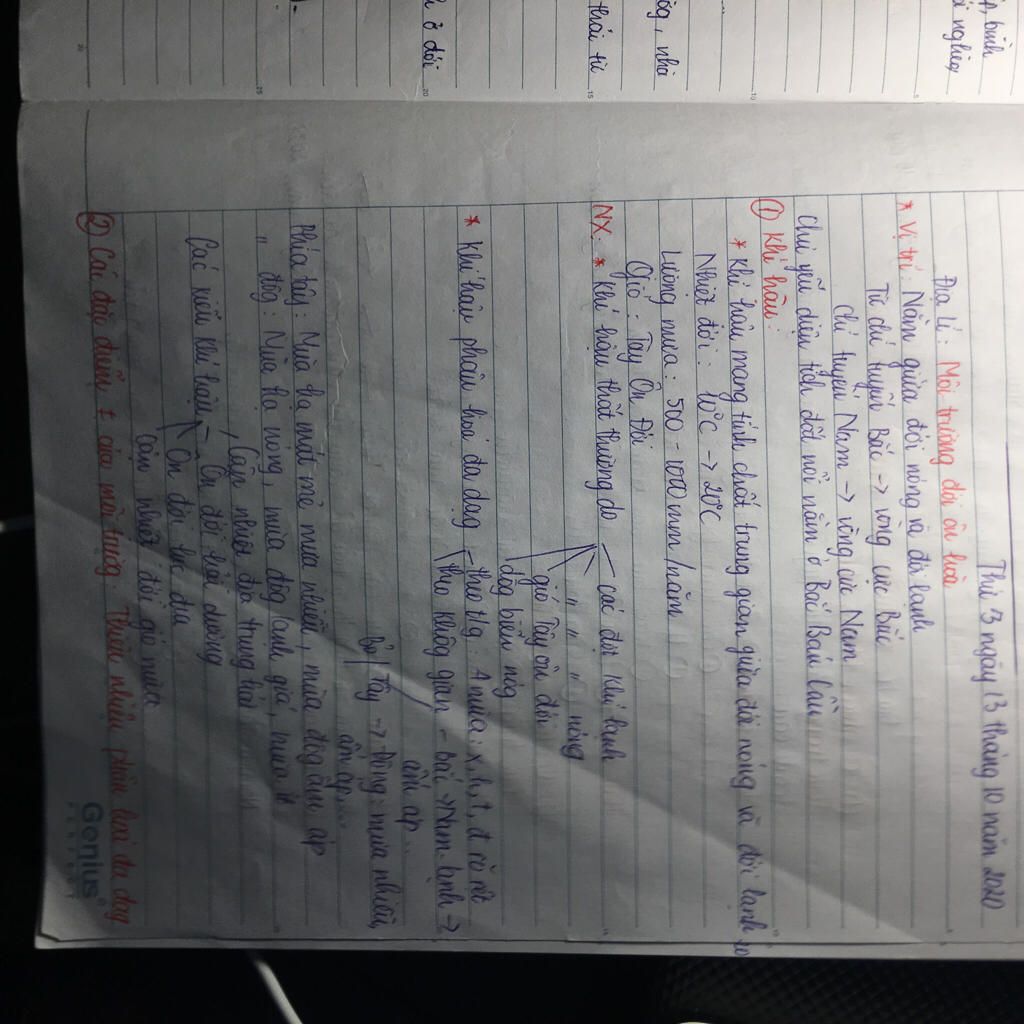 Thứ 3 ngày 13 tháng 10 năm 2020
Địa lí: Môi trường đới ôn hoà
* Vị trí: Nằm giữa đới nóng và đới lạnh
Từ chí tuyến Bắc → vòng cực Bắc
Chí tuyến Nam → vòng cực Nam
Chủ yếu diện tích đất nổi nằm ở Bắc Bán Cầu
① Khí hậu:
* Khí hậu mang tính chất trung gian giữa đới nóng và đới lạnh
Nhiệt độ: 10°C → 20°C
Lượng mưa: 500 - 1000 mm/năm
Gió: Tây Ôn Đới
NX: * Khí hậu thất thường do - các đợt khí lạnh
" " " nóng
gió Tây ôn đới
dòg biển nóg
* Khí hậu phân hoá đa dạg - theo t/g: 4 mùa: x, h, t, đ rõ rệt
- theo không gian - Bắc → Nam: lạnh →
ấm áp...
Bờ Tây → Đông: mưa nhiều,
ấm áp....
Phía tây: Mùa hạ mát mẻ mưa nhiều, mùa đôg ấm áp
" đôg: Mùa hạ nóng, mùa đôg lạnh giá, mưa ít
Các kiểu khí hậu - Cận nhiệt địa trung hải
- Ôn đới hải dương
Ôn đới lục địa
Cận nhiệt đới gió mùa
② Các đặc điểm ≠ của môi trường: Thiên nhiên phân hoá đa dạg
Genius
, bình
nghiệp,
ôg, nhà
thái từ
ở đới